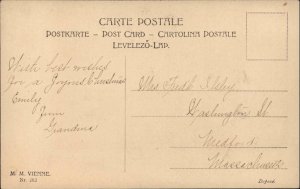 CARTE POSTALE
POSTKARTE – POST CARD – CARTOLINA POSTALE
LEVELEZŐ-LAP.
With best wishes
for a Joyous Christmas
Emily
from
Grandma
Miss Faith
Washington St.
Medford
Massachusetts
M. M. VIENNE.
Nr.
Déposé.